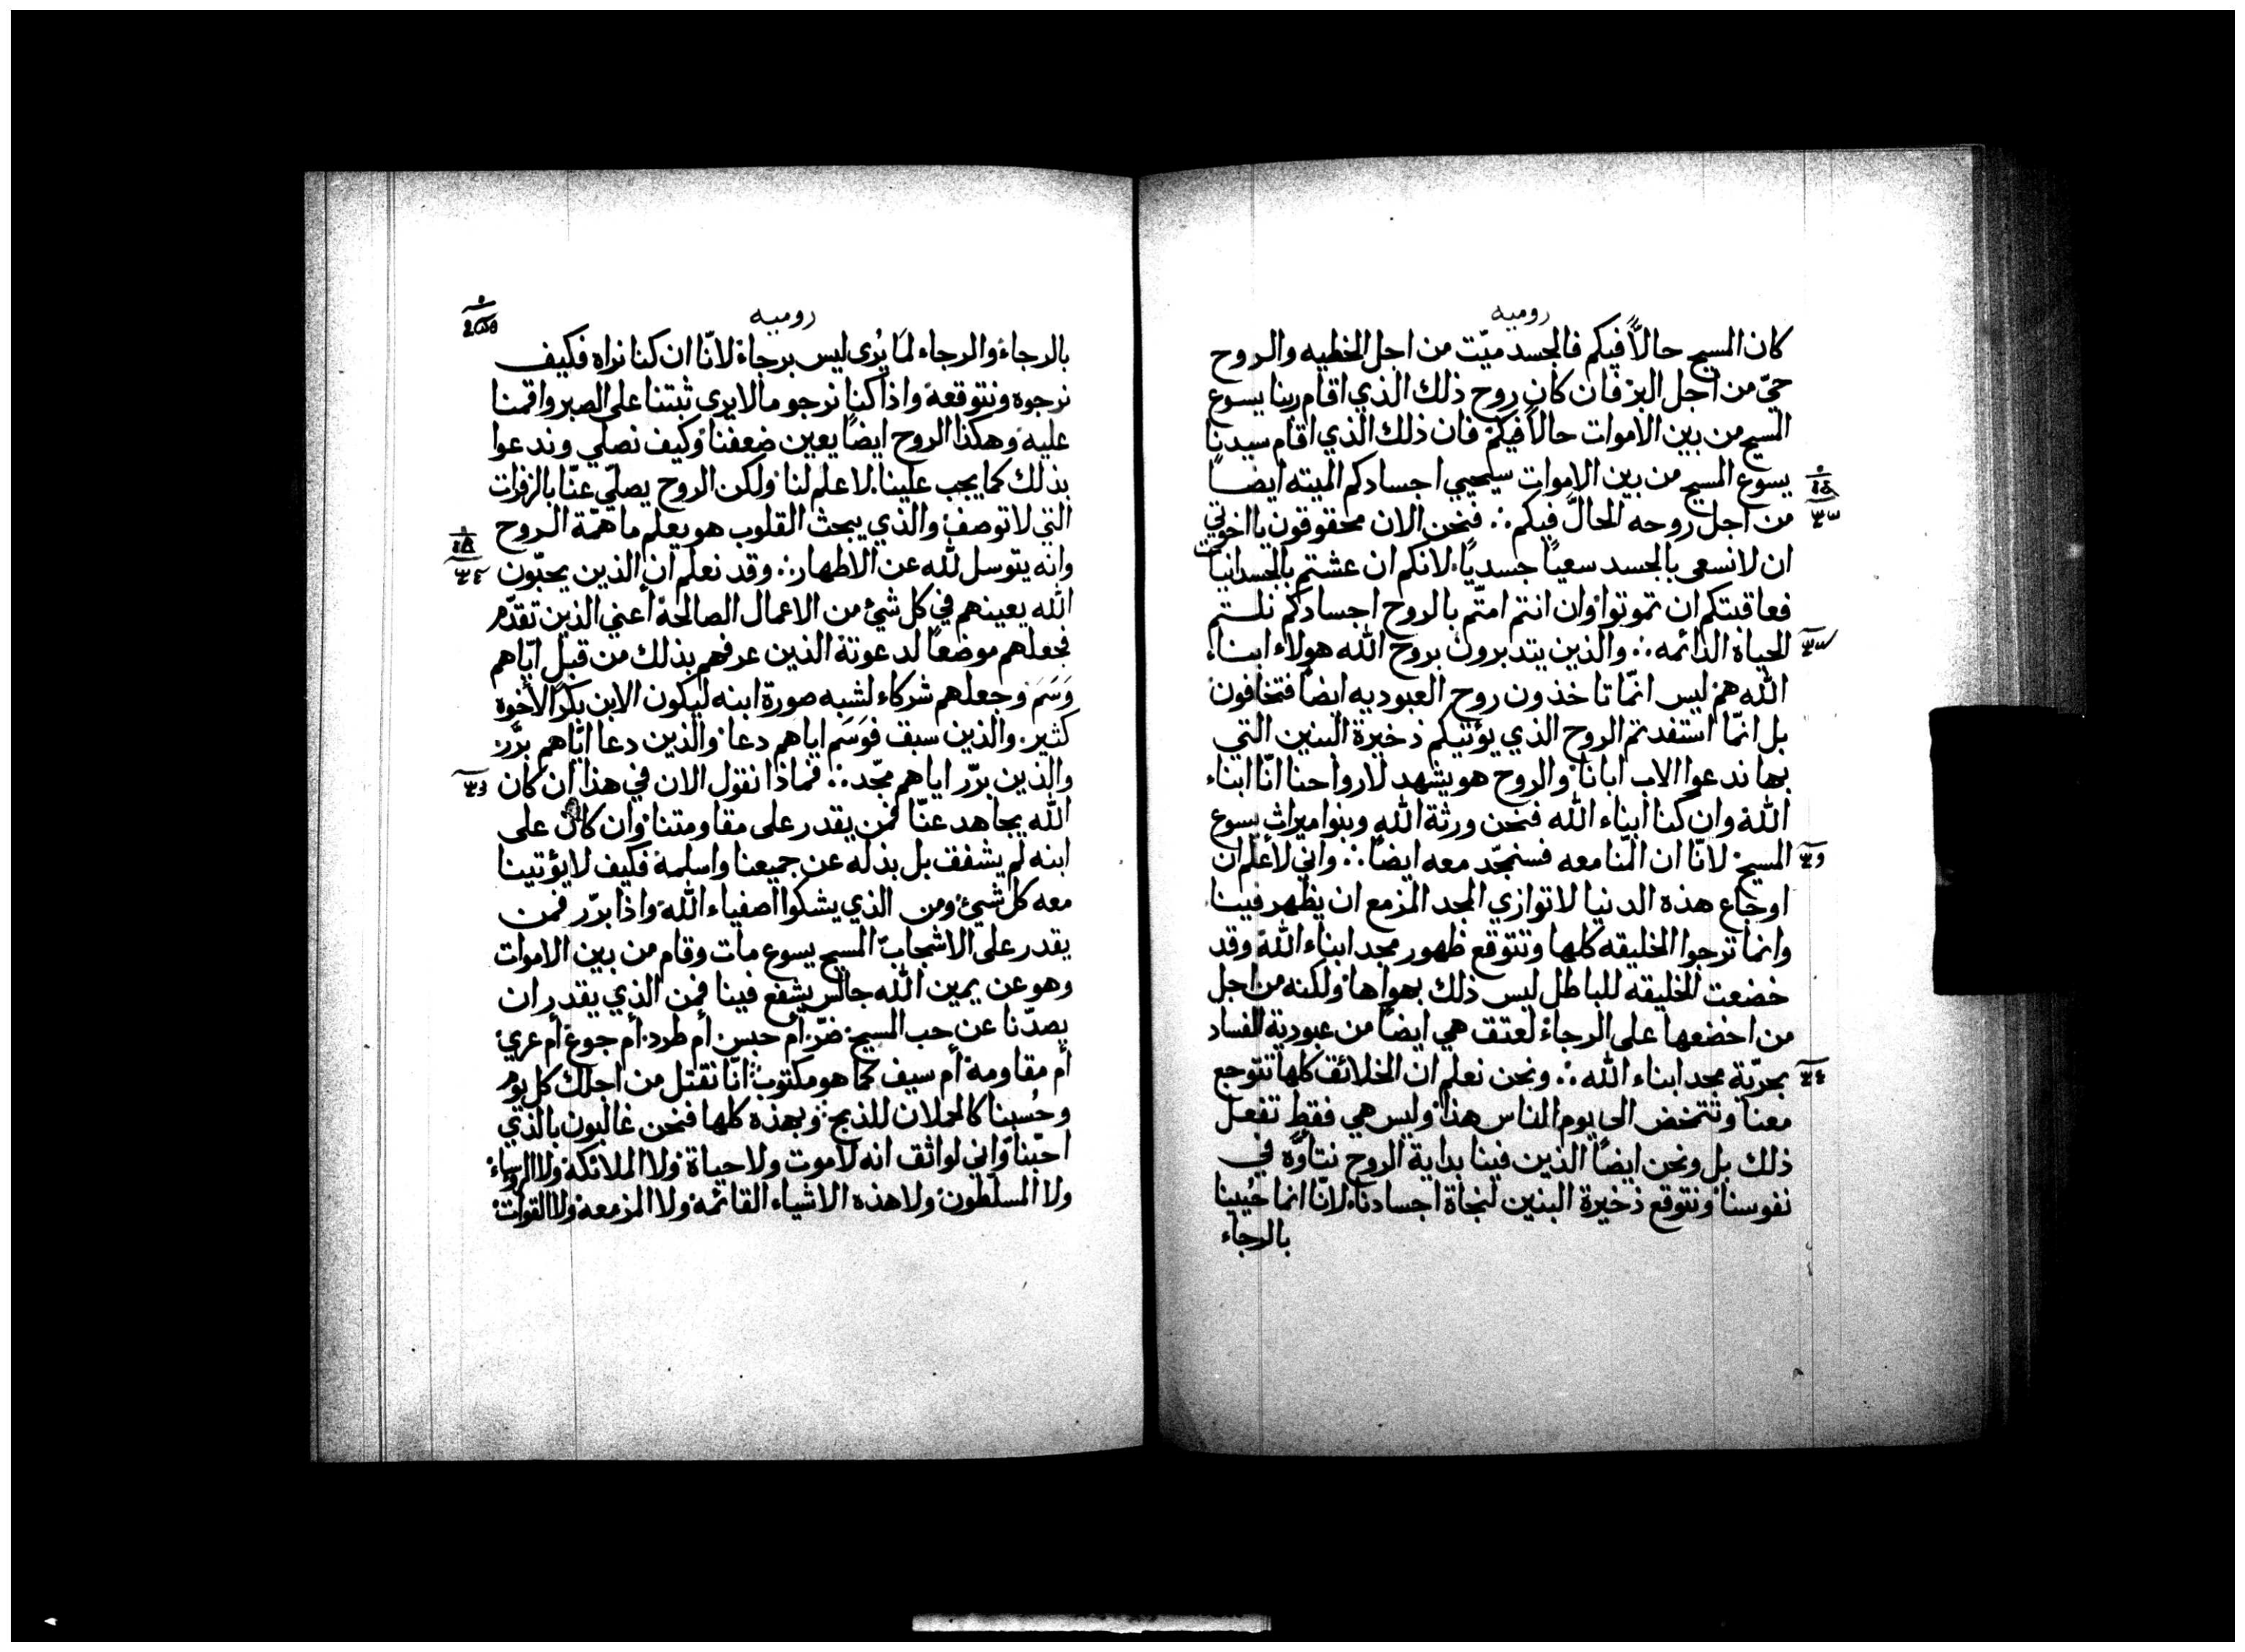 روميه
كان المسيح حالاً فيكم فالجسد ميّت من اجل الخطيه والروح
حيّ من اجل البر فان كان روح ذلك الذي اقام ربنا يسوع
المسيح من بين الاموات حالاً فيكم فان ذلك الذي اقام سيدنا
يسوع المسيح من بين الاموات سيحيي اجسادكم الميته ايضاً
من اجل روحه الحالّ فيكم ∴ فنحن الان محقوقون يااخوتي
ان لانسعى بالجسد سعياً جسدياً لانكم ان عشتم بالجسدانيات
فعاقبتكم ان تموتوا وان انتم امتّم بالروح اجسادكم نلتم
الحياة الدائمه ∴ والذين يتدبرون بروح الله هولاء ابناء
الله هم ليس انمّا تاخذون روح العبوديه ايضاً فتخافون
بل انمّا استفدتم الروح الذي يؤتيكم ذخيرة البنين التي
بها ندعوا الاب ابانا والروح هو يشهد لارواحنا انّا ابناء
الله وان كنا ابناء الله فنحن ورثة الله وبنوا ميراث يسوع
المسيح لانّا ان المّنا معه فسنمجّد معه ايضاً ∴ واني لأعلم ان
اوجاع هذه الدنيا لاتوازي المجد المزمع ان يظهر فينا
وانما ترجوا الخليقه كلها وتتوقع ظهور مجد ابناء الله وقد
خضعت الخليقه للباطل ليس ذلك بهواها ولكنه من اجل
من اخضعها على الرجاء لعتق هي ايضاً من عبودية الفساد
بحريّة مجد ابناء الله ∴ ونحن نعلم ان الخلائق كلها تتوجع
معنا وتتمخض الى يوم الناس هذا وليس هي فقط تفعل
ذلك بل ونحن ايضاً الذين فينا بداية الروح نتاوّه في
نفوسنا ونتوقع ذخيرة البنين لنجاة اجسادنا لانّا انما حُيينا
بالرجاء
روميه
بالرجاء والرجاء لما يُرى ليس برجاء لانّا ان كنا نراه فكيف
نرجوه ونتوقعه واذا كنا نرجو مالايرى ثبتنا على الصبر واقمنا
عليه وهكذا الروح ايضاً يعين ضعفنا وكيف نصلي وندعوا
بذلك كما يجب علينا لا علم لنا ولكن الروح يصلّي عنّا بالزفرات
التي لاتوصف والذي يبحث القلوب هو يعلم ماهمّة الروح
وانه يتوسل لله عن الاطهار ∴ وقد نعلم ان الذين يحبّون
الله يعينهم في كل شيْ من الاعمال الصالحة أعني الذين تقدّم
فجعلهم موضعاً لدعوته الذين عرفهم بذلك من قبل ايّاهم
وَسَمَ وجعلهم شركاء لشبه صورة ابنه ليكون الابن بكر الأخوه
كثير والذين سبق فوَسَم اياهم دعا والذين دعا ايّاهم برّر
والذين برّر اياهم مجّد ∴ فماذا نقول الان في هذا ان كان
الله يجاهد عنّا فمن يقدر على مقاومتنا وان كان على
ابنه لم يشفق بل بذله عن جميعنا واسلمه فكيف لايؤتينا
معه كل شيْ ومن الذي يشكوا اصفياء الله واذا برّر فمن
يقدر على الاشجاب المسيح يسوع مات وقام من بين الاموات
وهو عن يمين الله جالس يشفع فينا فمن الذي يقدر ان
يصدّنا عن حب المسيح ضرّ أم حبس أم طرد أم جوع أم عري
أم مقاومة أم سيف كما هو مكتوب انّا نقتل من اجلك كل يوم
وحُسبنا كالحملان للذبح وبهذه كلها فنحن غالبون بالذي
احبّنا واني لواثق انه لاموت ولاحياة ولا الملائكة ولا الروساء
ولا السلطون ولا هذه الاشياء القائمه ولا المزمعه ولا القوات